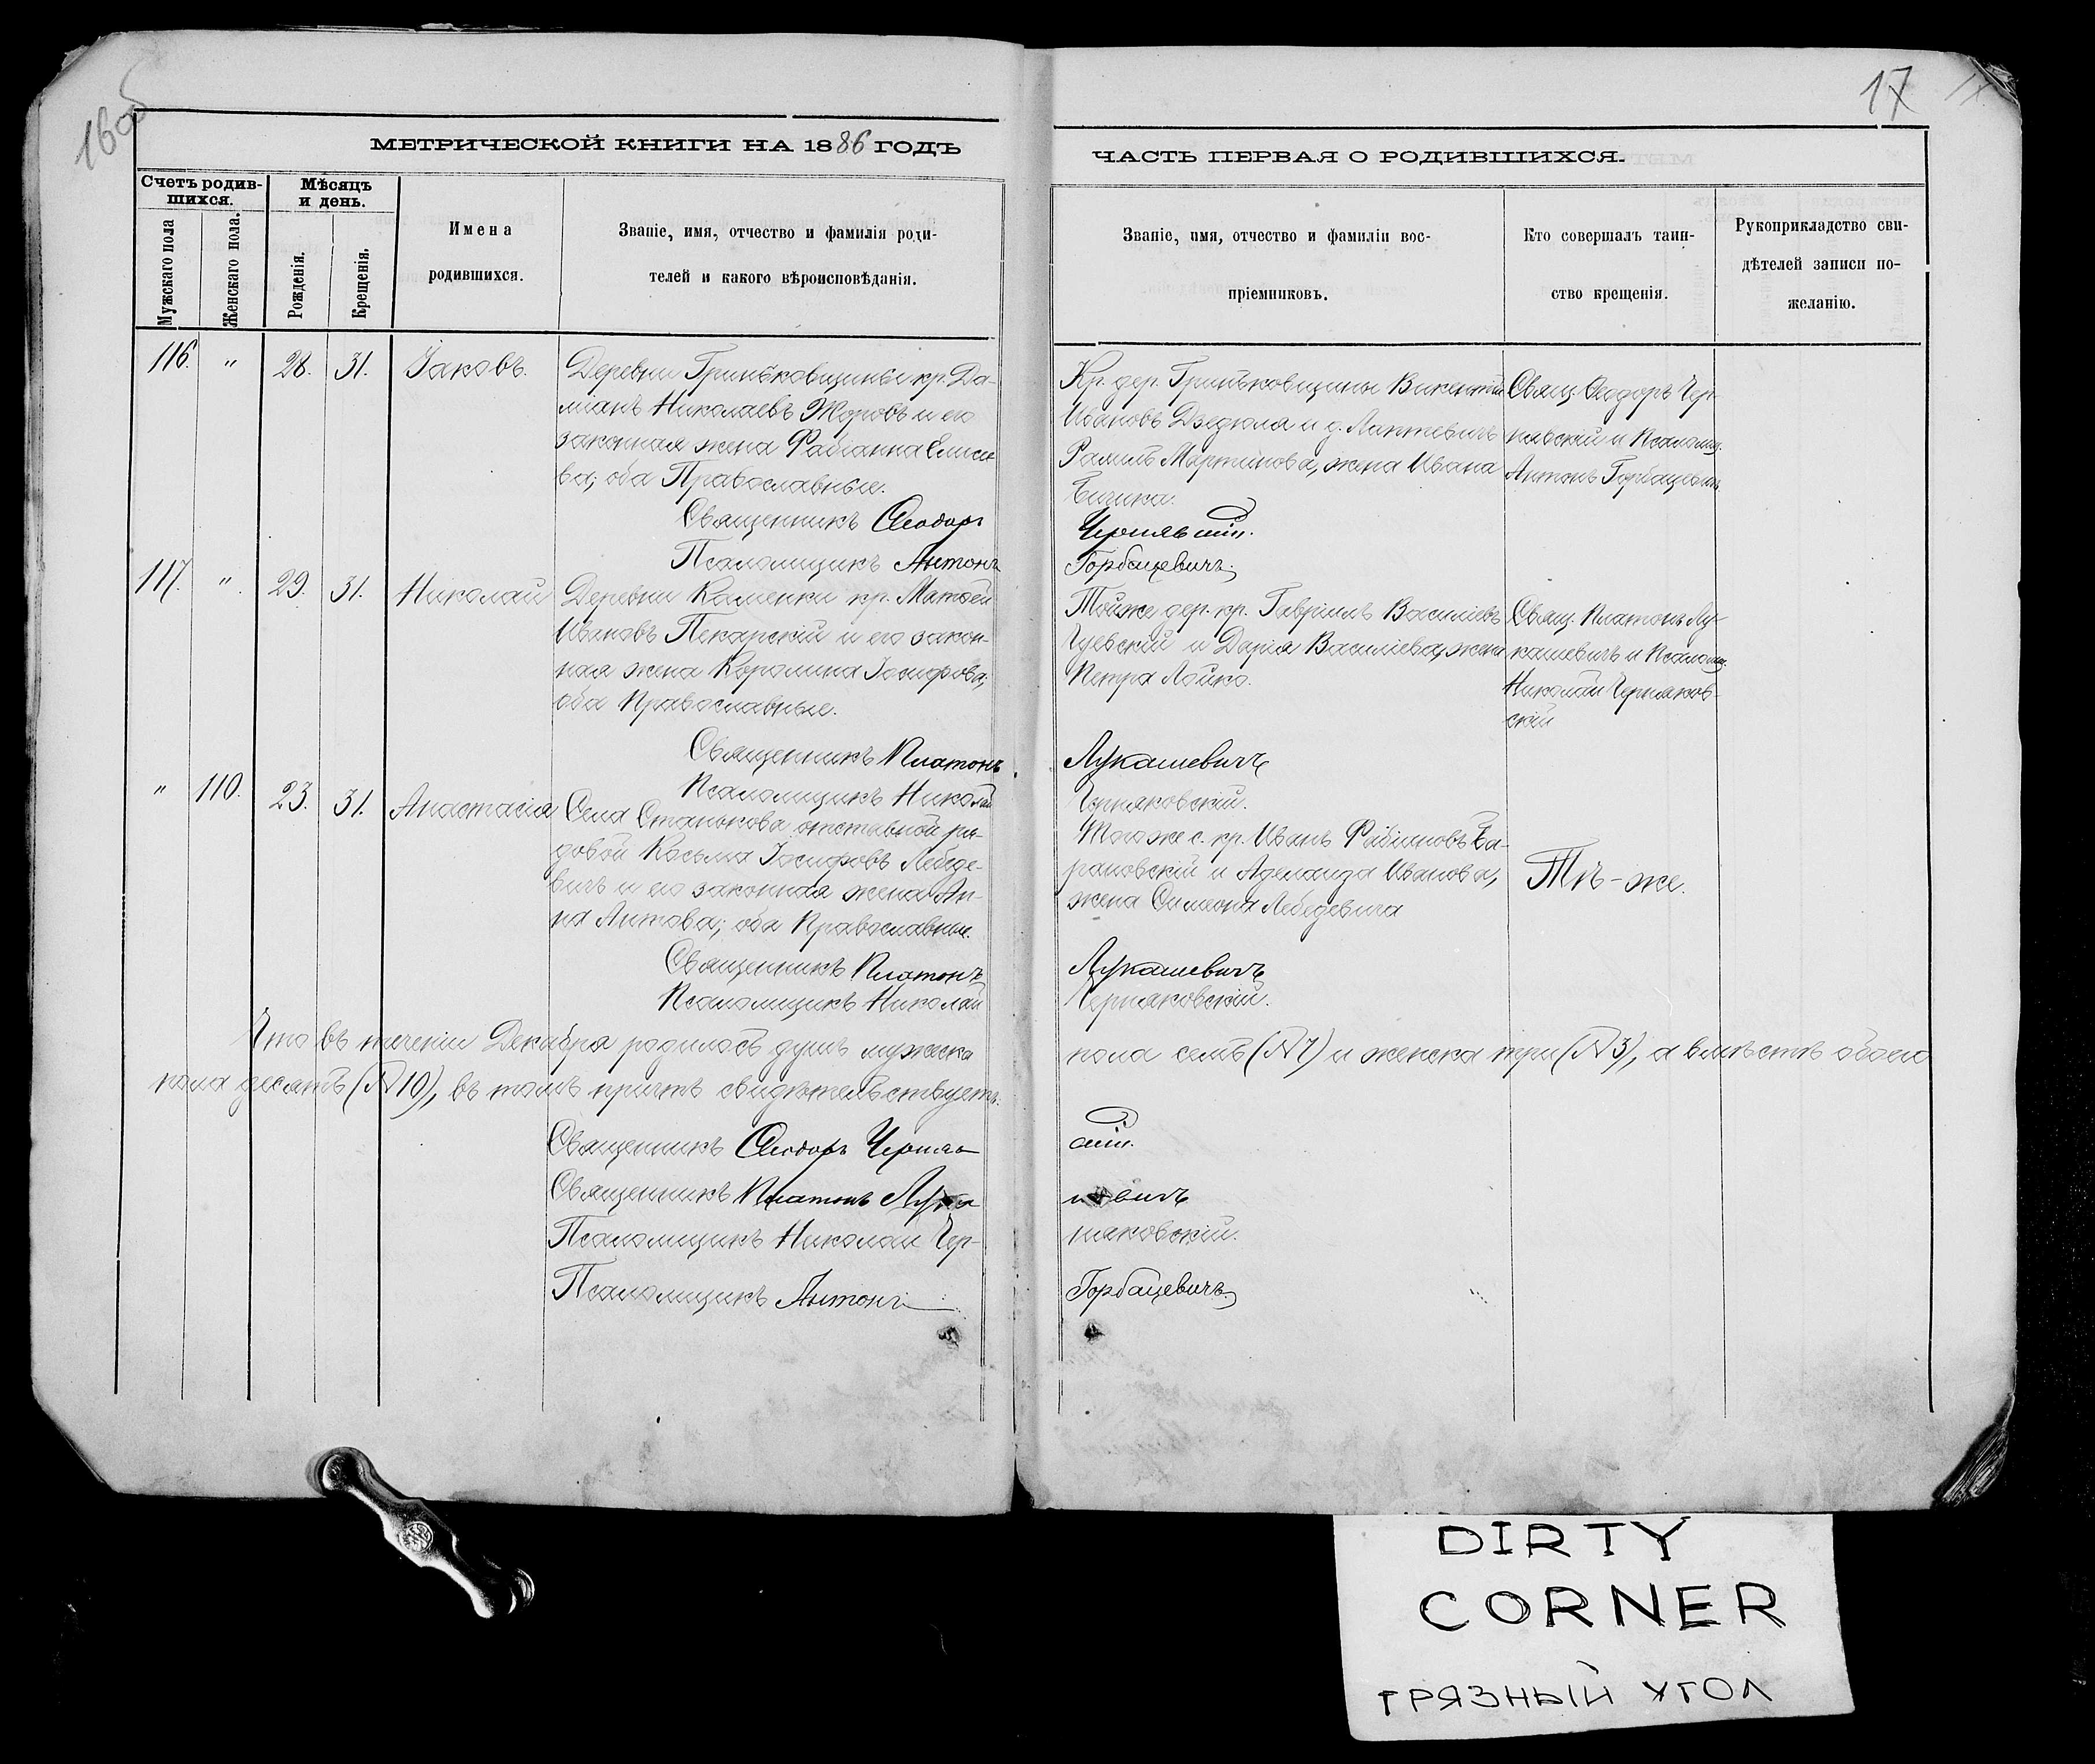 16об
МЕТРИЧЕСКОЙ КНИГИ НА 1886 ГОДЪ
Счетъ родив-
шихся.
Мѣсяцъ
и день.
Мужскаго пола
Женскаго пола.
Рожденія.
Крещенія.
Имена
родившихся.
Званіе, имя, отчество и фамилія роди-
телей и какого вѣроисповѣданія.
116. " 28. 31. Іаковъ.
Деревни Гриньковщины кр. Да-
міанъ Николаевъ Жоровъ и его
законная жена Фабіанна Елисе
ва; оба Православные.
Священникъ Ѳеодоръ
Псаломщикъ Антонъ
117. " 29. 31. Николай
Деревни Каменки кр. Матѳей
Ивановъ Пекарскій и его закон-
ная жена Каролина Іосифова,
оба Православные.
Священникъ Платонъ
Псаломщикъ Николай
" 110. 23. 31. Анастасія
Села Станькова отставной ря-
довой Косьма Іосифовъ Лебеде-
вичъ и его законная жена Ан-
на Антова; оба Православные.
Священникъ Платонъ
Псаломщикъ Николай
Что въ теченіи Декабря родилось душъ мужеска
пола десять (№ 10), въ томъ причтъ свидѣтельствуетъ.
Священникъ Ѳеодоръ Черняв
Священникъ Платонъ Лука
Псаломщикъ Николай Чер-
Псаломщикъ Антонъ
17
ЧАСТЬ ПЕРВАЯ О РОДИВШИХСЯ.
Званіе, имя, отчество и фамиліи вос-
пріемниковъ.
Кто совершалъ таин-
ство крещенія.
Рукоприкладство сви-
дѣтелей записи по-
желанію.
Кр. дер. Гриньковщины Викентій
Ивановъ Дзедюля и д. Лаптевичъ
Мартинова, жена Ивана
Бичика.
Чернявскій.
Горбацевичъ.
Свящ. Ѳеодоръ Чер-
нявскій и Псаломщ.
Антонъ Горбацевич
Тойже дер. кр. Гавріилъ Василіевъ
и Дарія Василіева, жена
Петра Лойко.
Лукашевичъ
Черняковскій.
Свящ. Платонъ Лу-
кашевичъ и Псаломщ.
Николай Черняков-
скій
Тогоже с. кр. Иванъ Фабіановъ Ба-
рановскій и Аделаида Иванова,
жена Симеона Лебедевича
Лукашевичъ
Черняковскій.
Тѣ-же.
пола семь (№ 7) и женска три (№ 3), а вмѣстѣ обоего
скій.
шевичъ
няковскій.
Горбацевичъ.
DIRTY
CORNER
ГРЯЗНЫЙ УГОЛ